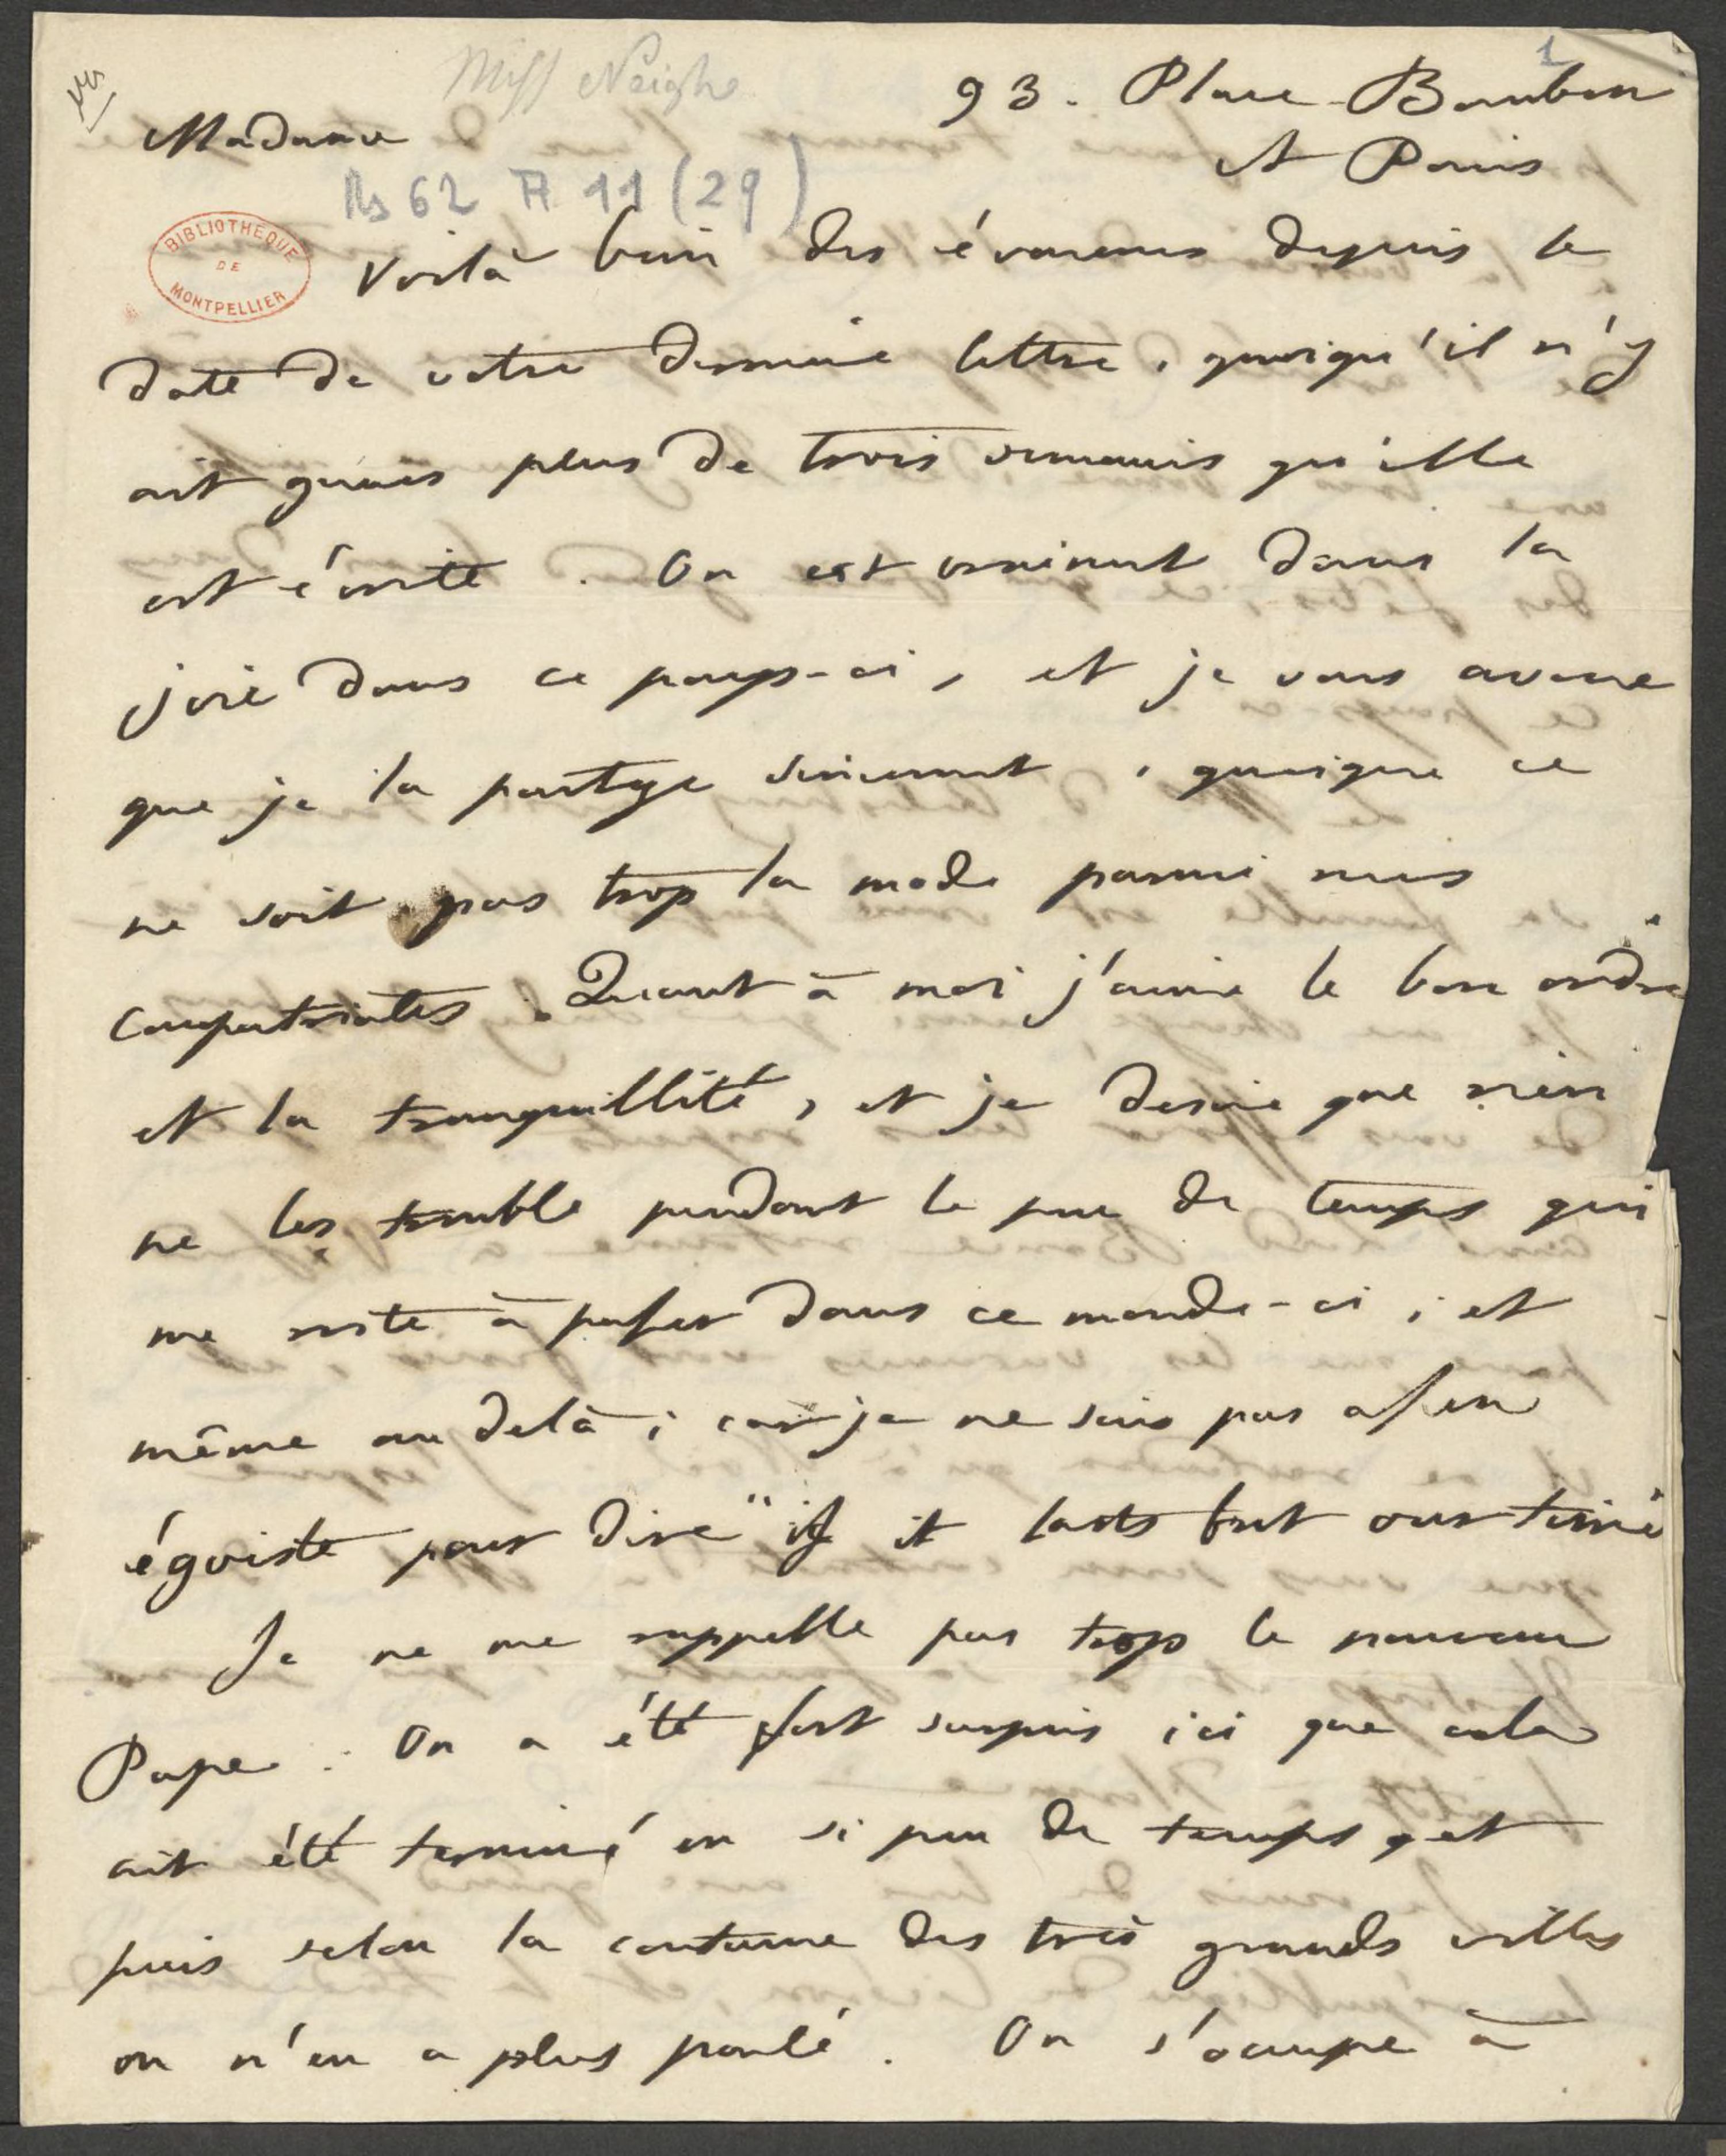 Miss Neigh
1
93. Place Bourbon
Madame
A Paris
Ms 62 A 11 (29)
BIBLIOTHÈQUE
DE
MONTPELLIER
Voilà bien des évenemens depuis la
date de votre derniere lettre, quoiqu'il n'y
ait gueres plus de trois semaines qu'elle
est écrite. On est vraiment dans la
joie dans ce pays-ci, et je vous avoue
que je la partage sincerement, quoique ce
ne soit pas trop la mode parmi mes
compatriotes. Quant à moi j'aime le bon ordre
et la tranquillité, et je desire que rien
ne les trouble pendant le peu de temps qui
me reste à passer dans ce monde-ci, et
même au delà; car je ne suis pas assez
égoiste pour dire "if it lasts but our time
Je ne me rappelle pas trop le nouveau
Pape. On a été fort surpris ici que cela
ait été terminé en si peu de temps, et
puis selon la coutume des très grands villes
on n'en a plus parlé. On s'occupe à